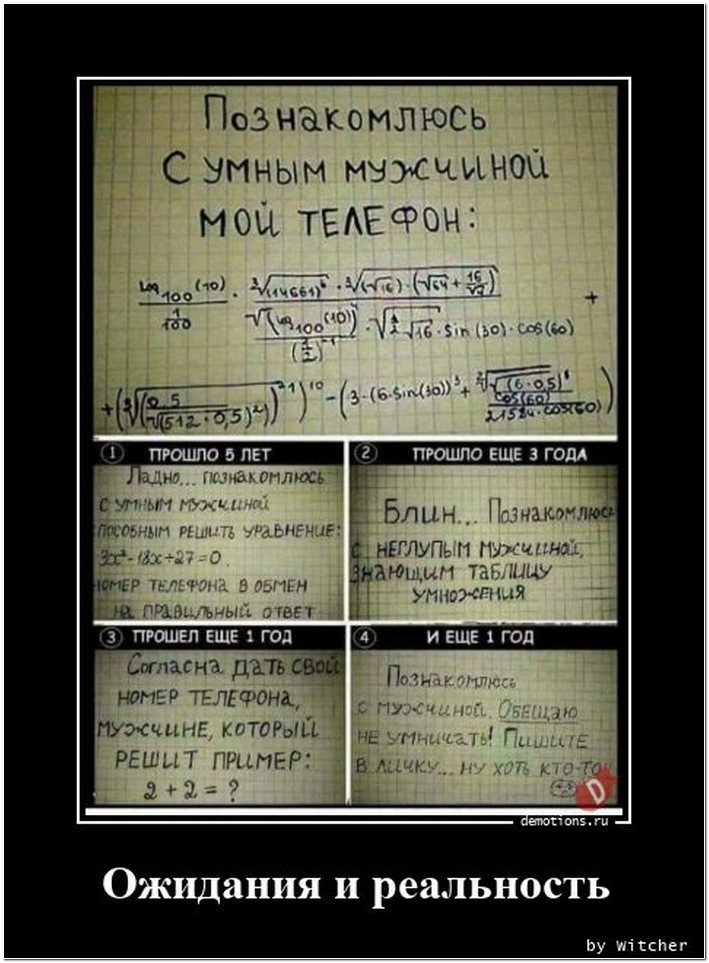 Познакомлюсь
с умным мужчиной
мой телефон:
log₁₀₀(10)
1/100
+
sin(30)·cos(60)
① ПРОШЛО 5 ЛЕТ
Ладно... познакомлюсь
с умным мужчиной
способным решить уравнение:
3x²-18x+27=0.
номер телефона в обмен
на правильный ответ
② ПРОШЛО ЕЩЕ 3 ГОДА
Блин... Познакомлюсь
с неглупым мужчиной,
знающим таблицу
умножения
③ ПРОШЕЛ ЕЩЕ 1 ГОД
Согласна дать свой
номер телефона,
мужчине, который
решит пример:
2+2=?
④ И ЕЩЕ 1 ГОД
Познакомлюсь
с мужчиной. Обещаю
не умничать! Пишите
в личку... ну хоть кто-то
D
demotions.ru
Ожидания и реальность
by Witcher